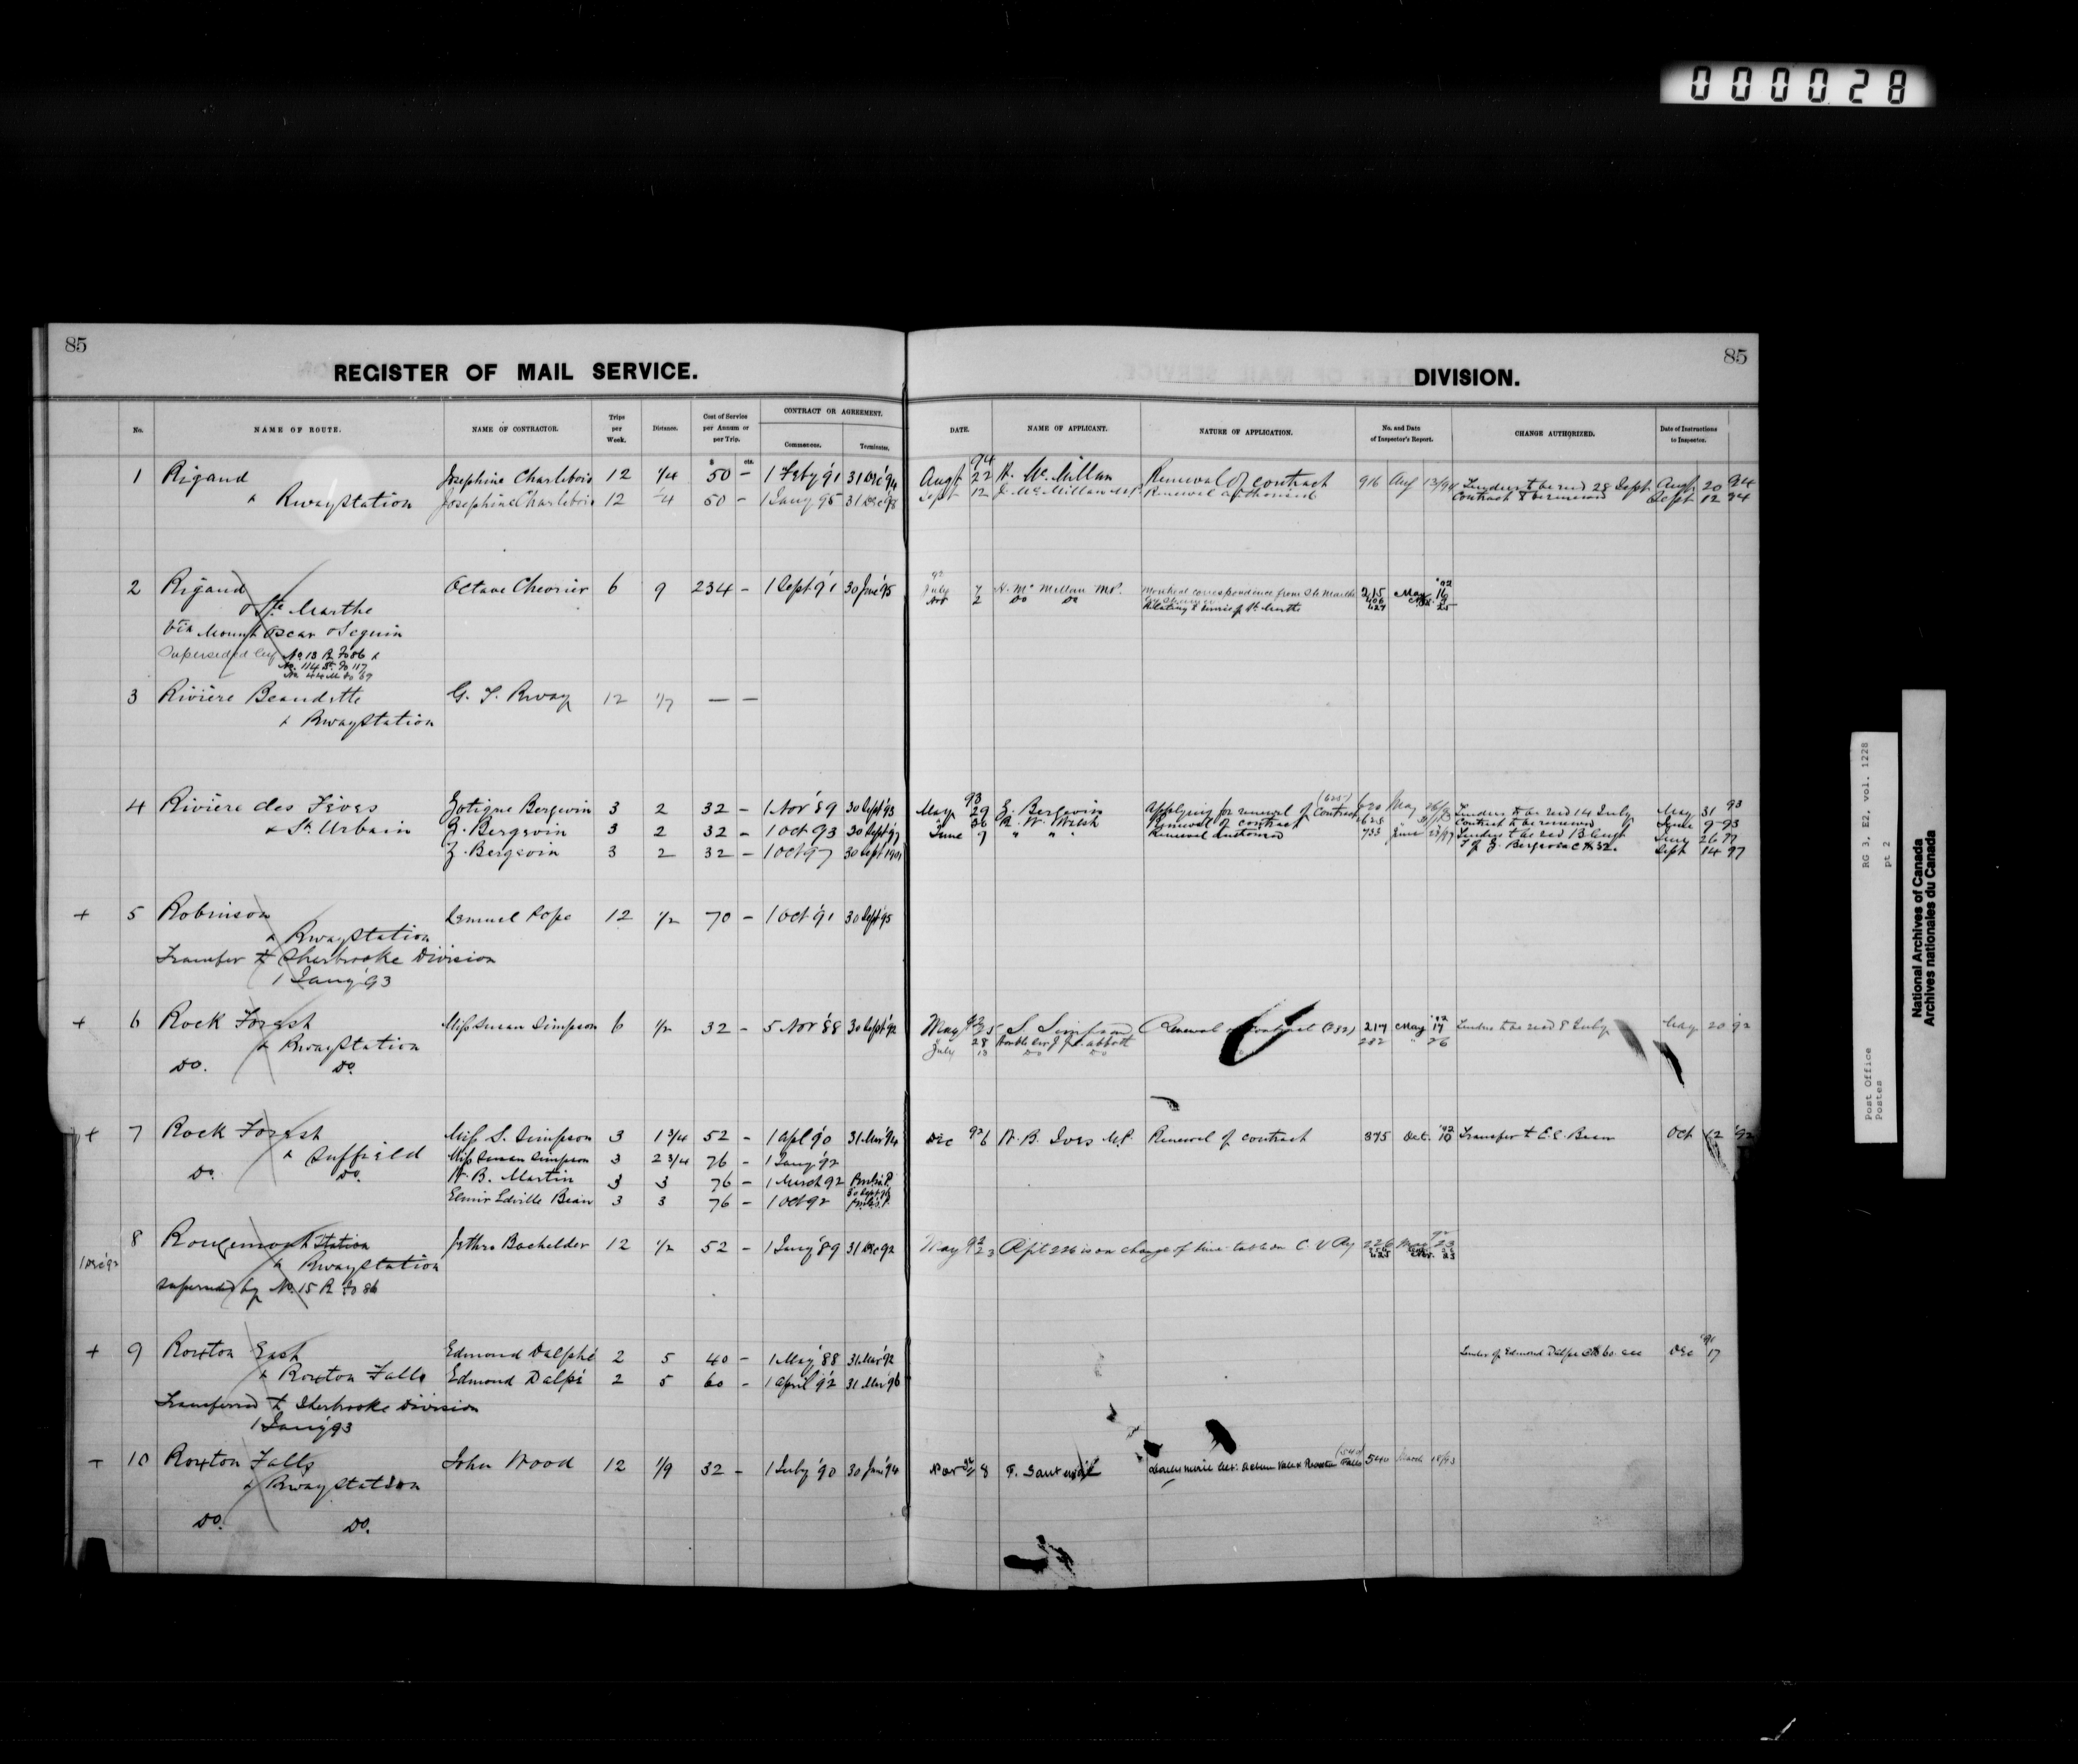 000028
85
REGISTER OF MAIL SERVICE.
No.
NAME OF ROUTE.
NAME OF CONTRACTOR.
Trips per Week.
Distance.
Cost of Service per Annum or per Trip.
$ cts.
CONTRACT OR AGREEMENT.
Commences.
Terminates.
1 Rigaud Josephine Charlebois 12 1/4 50 – 1 Feby '91 31 Dec '94
& Rwaystation Josephine Charlebois 12 1/4 50 – 1 Jany 95 31 Dec 98
2 Rigaud Octave Chevrier 6 9 234 – 1 Sept 91 30 June 95
& Ste Marthe
via Mount Oscar & Seguin
Superseded by No 13 R Fo 86 &
No. 114 St. Fo 117
3 Rivière Beaudette G. T. Rway 12 1/7 — —
& Rwaystation
4 Rivière des Fèves Zotique Bergevin 3 2 32 – 1 Nov '89 30 Sept '93
& St. Urbain Z. Bergevin 3 2 32 – 1 Oct 93 30 Sept '97
Z. Bergevin 3 2 32 – 1 Oct 97 30 Sept 1901
+ 5 Robinson Lemuel Pope 12 1/2 70 – 1 Oct '91 30 Sept '95
& Rwaystation
Transfer to Sherbrooke Division
1 Jany '93
+ 6 Rock Forest Miss Susan Simpson 6 1/2 32 – 5 Nov '88 30 Sept '92
& Rwaystation
Do. Do.
+ 7 Rock Forest Miss S. Simpson 3 1 3/4 52 – 1 Apl '90 31 Mar '94
& Suffield Miss Susan Simpson 3 2 3/4 76 – 1 Jany '92
Do. Do. W. B. Martin 3 3 76 – 1 March 92
Elmir Edville Bean 3 3 76 – 1 Oct 92
8 Rougemont Station Jethro Bachelder 12 1/2 52 – 1 Jany '89 31 Dec 92
1 Dec '92 & Rwaystation
superseded by No. 15 R Fo 86
+ 9 Roxton East Edmond Dalphé 2 5 40 – 1 May '88 31 Mar '92
& Roxton Falls Edmond Dalpé 2 5 60 – 1 April '92 31 Mar '96
Transferred to Sherbrooke Division
1 Jany '93
10 Roxton Falls John Wood 12 1/9 32 – 1 July '90 30 June '94
& Rwaystation
Do. Do.
85
DIVISION.
DATE.
NAME OF APPLICANT.
NATURE OF APPLICATION.
No. and Date of Inspector's Report.
CHANGE AUTHORIZED.
Date of Instructions to Inspector.
94
Augt 22 H. McMillan Renewal of contract 916 Aug 13/94 Tenders to be recd 28 Sept Augt 20 94
Sept 12 McMillan M.P. Renewal authorised Contract to be renewed Sept 12 94
92
July 7 H. McMillan M.P. Montreal correspondence from Ste Marthe 215 May 16 '92
Nov 2 Do Do Relating to service of St. Marthe
93
May 29 Z. Bergevin Applying for renewal of contract (625) 620 May Tenders to be recd 14 July May 31 93
R. W. Walsh Renewal of contract Contract to be renewed June 9 93
June 7 " " " Renewal authorised 733 June 23/97 Tenders to be recd 13 Augt 26 97
T of Z. Bergevin @ $32. Sept 14 97
May 92 25 S. Simpson Renewal of contract (282) 217 May 92 17 Tenders to be recd 8 July May 20 '92
28 Honble Sir J. J. C. Abbott 282 " 26
July 13 Do Do
Dec 92 6 W. B. Ives M.P. Renewal of contract 375 Oct. '92 10 Transfer to E. E. Bean Oct 12 '92
May 92 23 Rept 226 is on change of time-table on C. V. Ry 226 May 92 23
Tender of Edmond Dalpé @ $60. acc Dec '91 17
Nov 92 8 540 March 15/93
RG 3, E2, vol. 1228
pt 2
Post Office
Postes
National Archives of Canada
Archives nationales du Canada